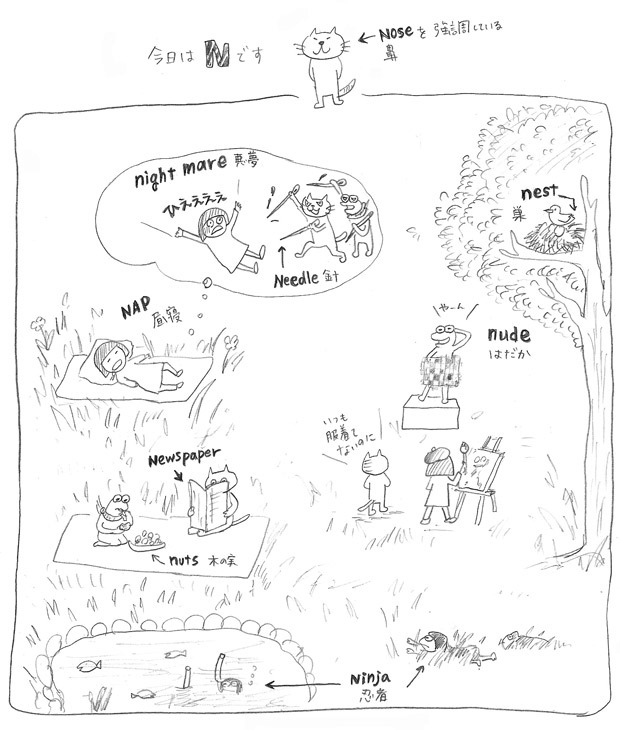 今日は N です
← Nose を強調している
鼻
night mare 悪夢
ひえええええ
Needle 針
nest
巣
NAP
昼寝
やーん
nude
はだか
いつも
服着て
ないのに
Newspaper
nuts 木の実
Ninja
忍者